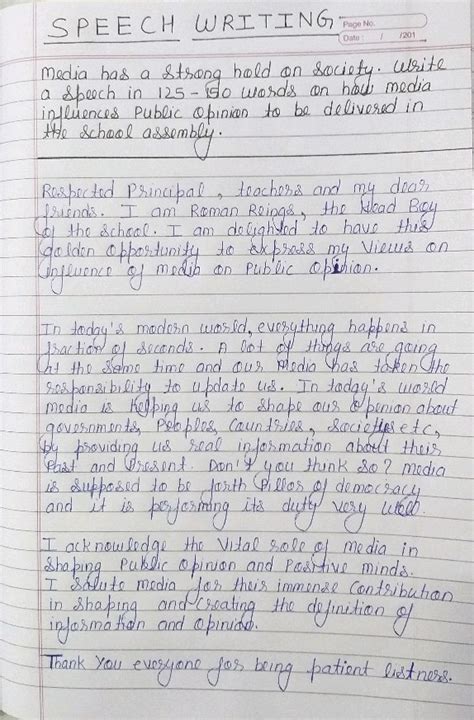 SPEECH WRITING
Page No.
Date: / /201
Media has a strong hold on society. Write
a speech in 125-150 words on how media
influences Public opinion to be delivered in
the school assembly.
Respected Principal, teachers and my dear
friends. I am Roman Reings, the Head Boy
of the school. I am delighted to have this
golden opportunity to express my views on
influence of media on Public opinion.
In today's modern world, everything happens in
fraction of seconds. A lot of things are going
at the same time and our Media has taken the
responsibility to update us. In today's world
media is helping us to shape our openion about
governments, Peoples, Countries, societies etc,
by providing us real information about their
Past and Present. Don't you think so? media
is supposed to be forth Pillor of democracy
and it is performing its duty very well.
I acknowledge the Vital role of media in
shaping Public opinion and Positive minds.
I salute media for their immense Contribution
in shaping and creating the definition of
information and opinion.
Thank You everyone for being patient listness.